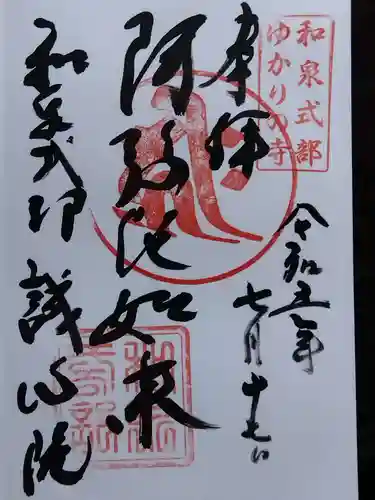 和泉式部
ゆかりの寺
奉拝
令和五年
七月十七日
阿弥陀如来
和泉式部
誠心院